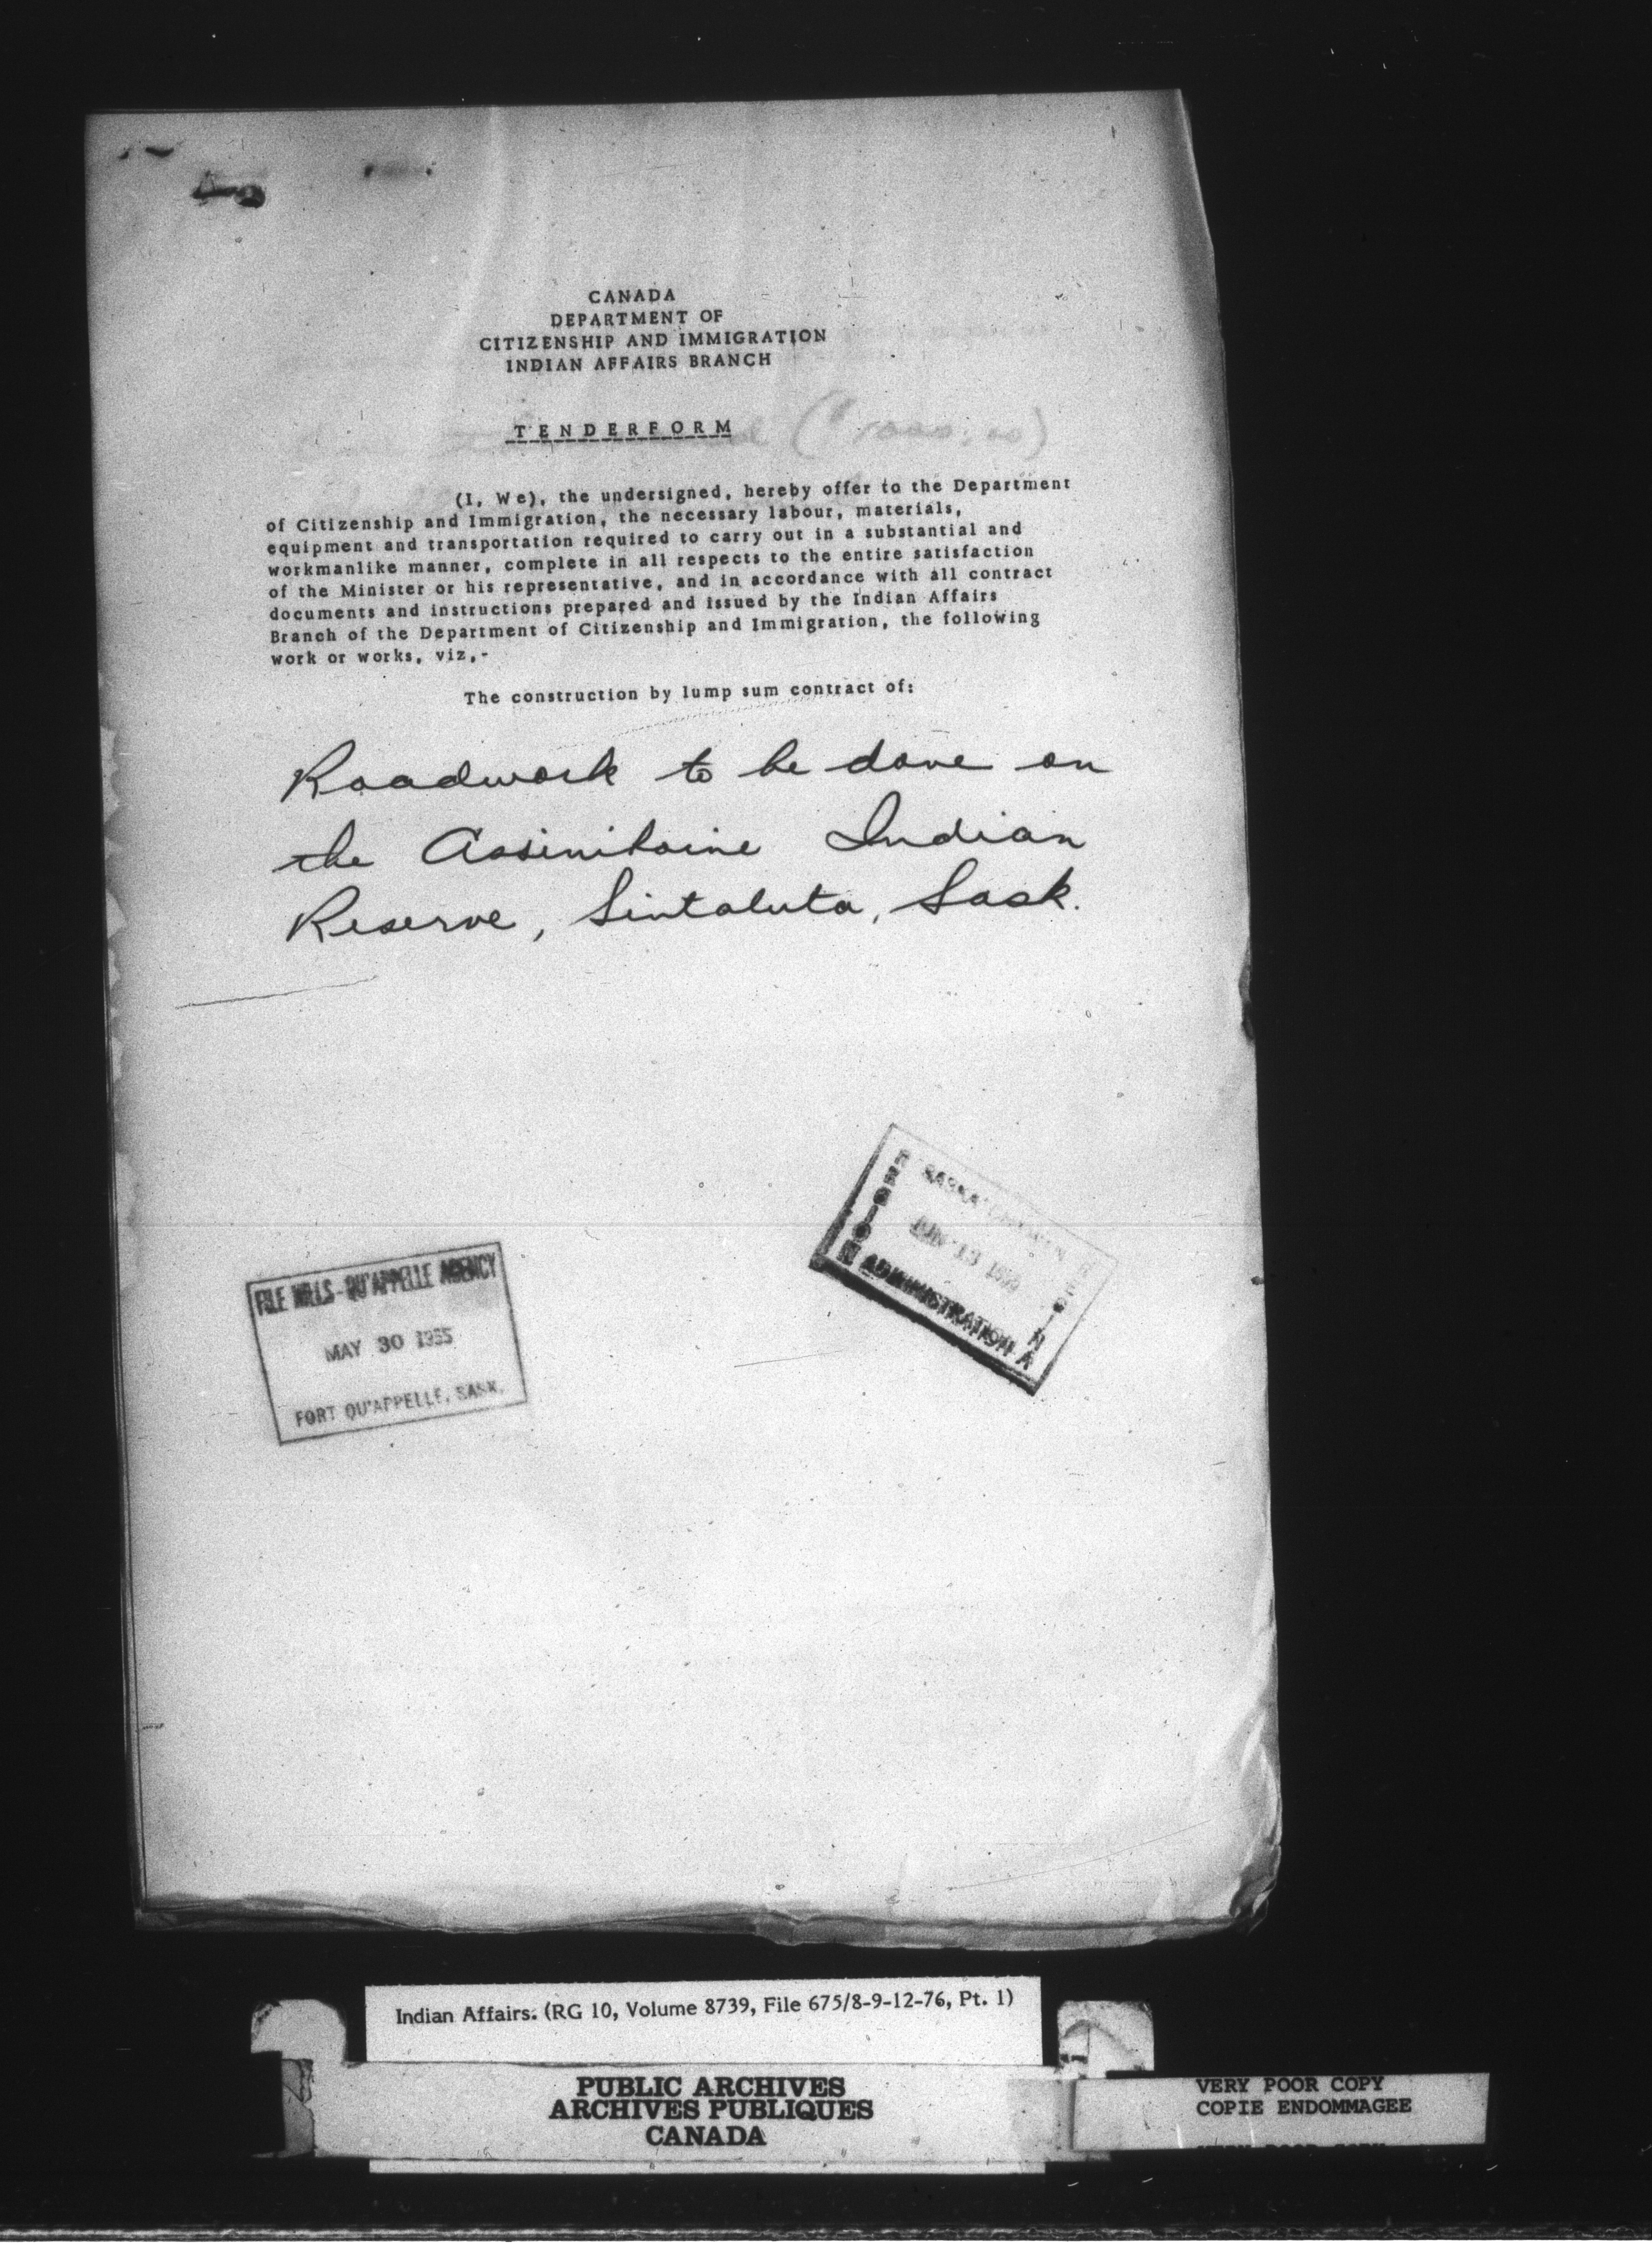 CANADA
DEPARTMENT OF
CITIZENSHIP AND IMMIGRATION
INDIAN AFFAIRS BRANCH
TENDERFORM
(I, We), the undersigned, hereby offer to the Department
of Citizenship and Immigration, the necessary labour, materials,
equipment and transportation required to carry out in a substantial and
workmanlike manner, complete in all respects to the entire satisfaction
of the Minister or his representative, and in accordance with all contract
documents and instructions prepared and issued by the Indian Affairs
Branch of the Department of Citizenship and Immigration, the following
work or works, viz,-
The construction by lump sum contract of:
Roadwork to be done on
the Assiniboine Indian
Reserve, Sintaluta, Sask.
FILE HILLS-QU'APPELLE AGENCY
MAY 30 1955
FORT QU'APPELLE, SASK.
SASKATCHEWAN
JUN 13
REGINA
ADMINISTRATION
Indian Affairs. (RG 10, Volume 8739, File 675/8-9-12-76, Pt. 1)
PUBLIC ARCHIVES
ARCHIVES PUBLIQUES
CANADA
VERY POOR COPY
COPIE ENDOMMAGEE